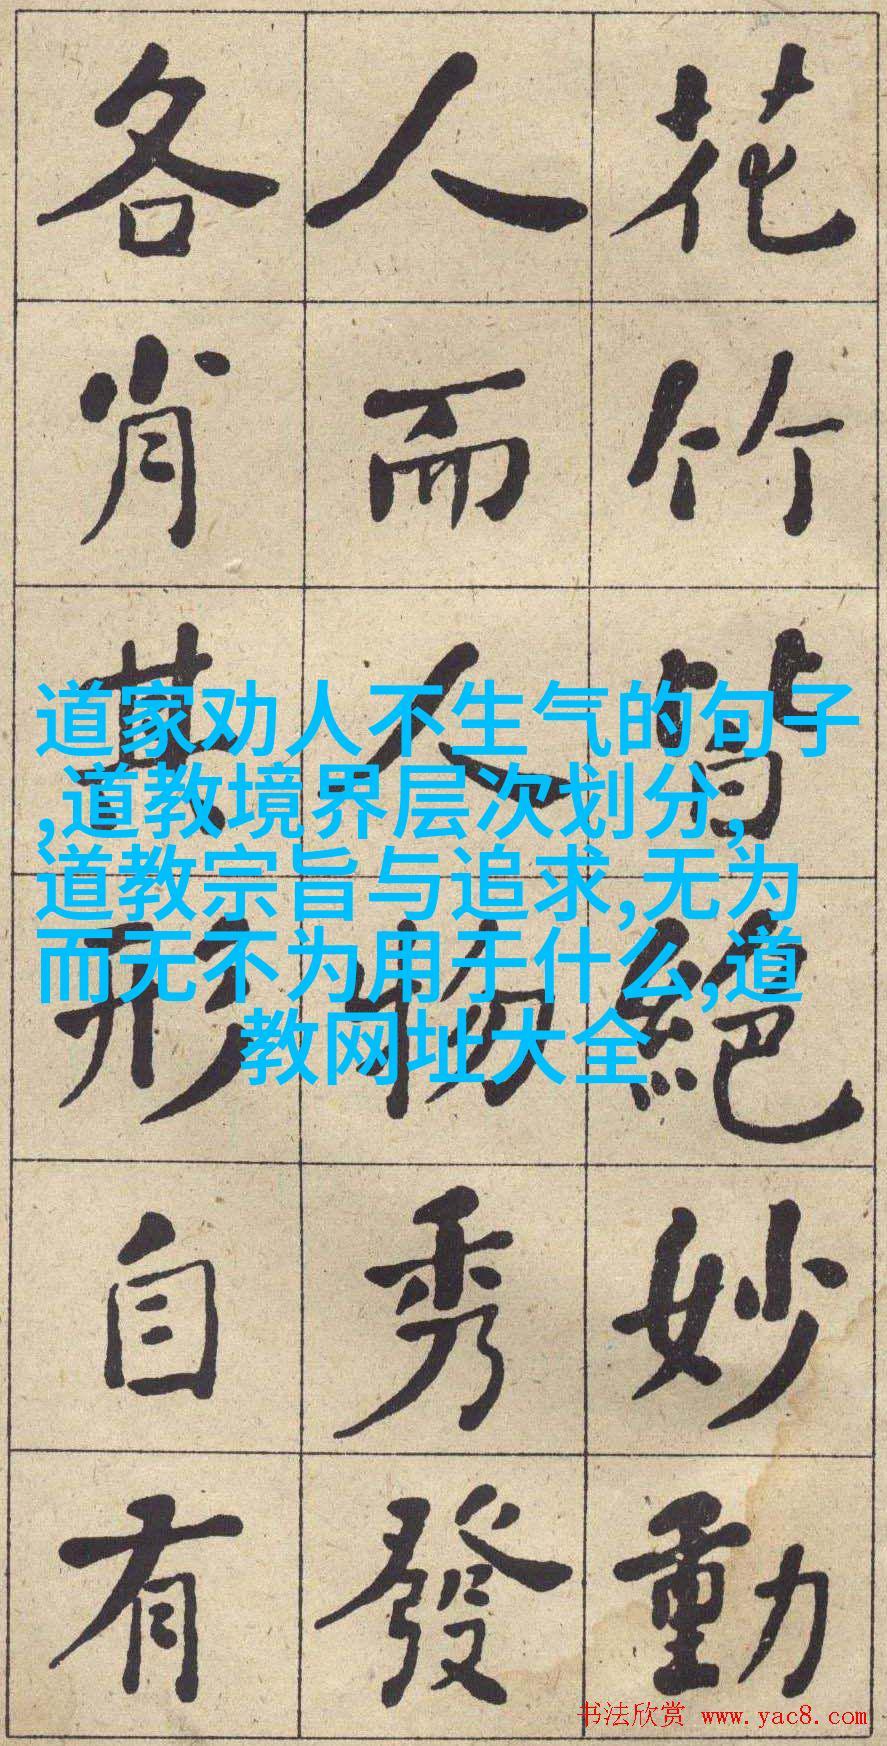 花竹皆絕妙動
人而人物秀發
各肖其形自有
道家劝人不生气的句子
,道教境界层次划分,
道教宗旨与追求,无为
而无不为用于什么,道
教网址大全
书法欣赏 www.yac8.com